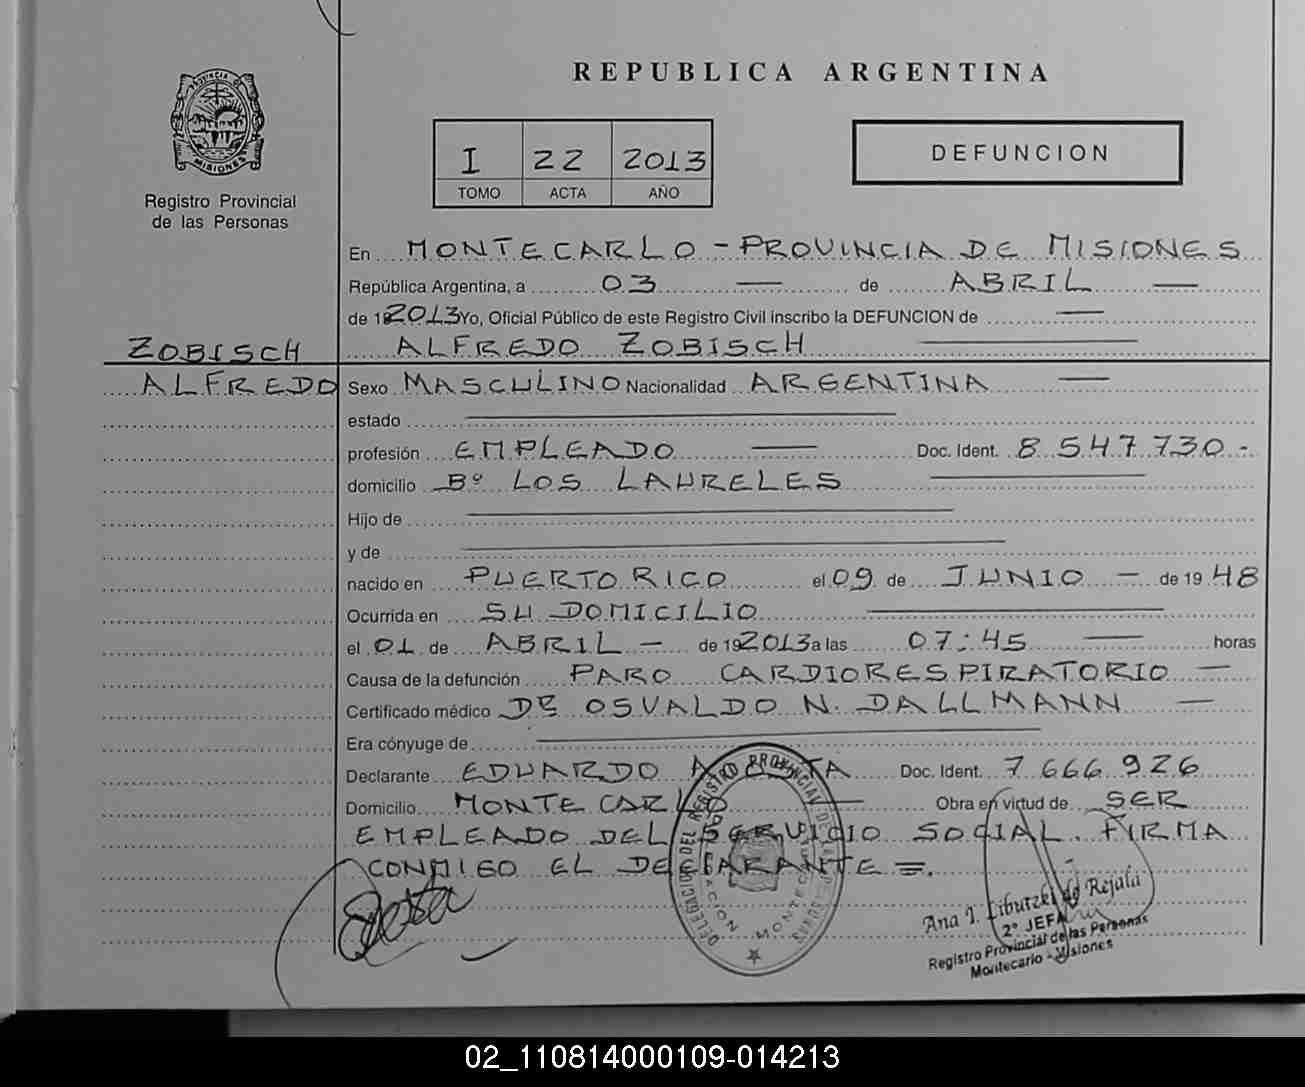 REPUBLICA ARGENTINA
PROVINCIA DE
MISIONES
Registro Provincial
de las Personas
I 22 2013
TOMO ACTA AÑO
DEFUNCION
En MONTECARLO - PROVINCIA DE MISIONES
República Argentina, a 03 — de ABRIL —
de 12013 Yo, Oficial Público de este Registro Civil inscribo la DEFUNCION de —
ZOBISCH ALFREDO ZOBISCH
ALFREDO Sexo MASCULINO Nacionalidad ARGENTINA —
estado —
profesión EMPLEADO — Doc. Ident. 8 547 730-
domicilio Bº LOS LAURELES —
Hijo de —
y de —
nacido en PUERTO RICO el 09 de JUNIO - de 1948
Ocurrida en SU DOMICILIO —
el 01 de ABRIL - de 192013 a las 07:45 — horas
Causa de la defunción PARO CARDIORESPIRATORIO —
Certificado médico DE OSVALDO N. DALLMANN —
Era cónyuge de —
Declarante EDUARDO Doc. Ident. 7 666 926
Domicilio MONTECARLO — Obra en virtud de SER
EMPLEADO DEL SERVICIO SOCIAL. FIRMA
CONMIGO EL DECLARANTE =.
DELEGACION DEL REGISTRO PROVINCIAL DE LAS PERSONAS
MONTECARLO
Ana I. Rejala
2º JEFA
Registro Provincial de las Personas
Montecarlo - Misiones
02_110814000109-014213